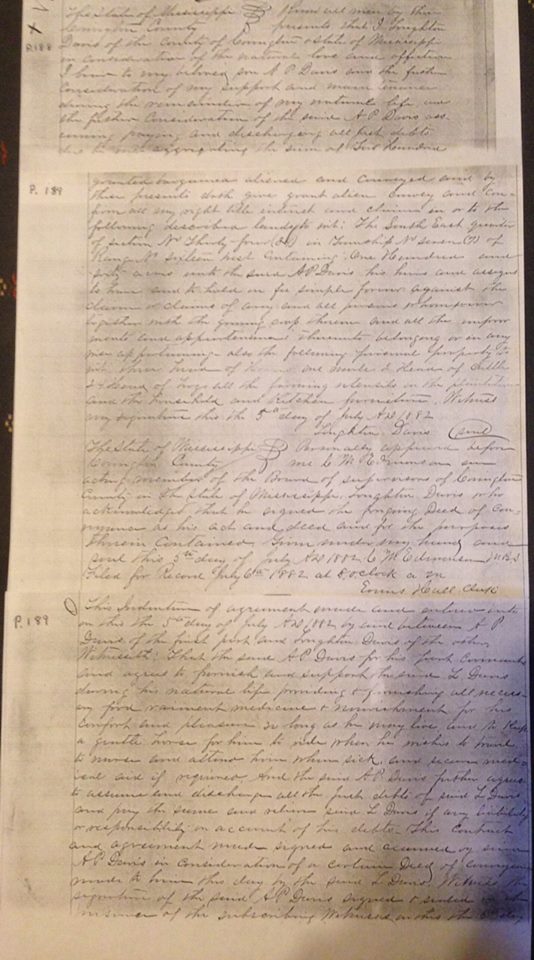 X
P.188
The State of Mississippi Know all men by these
Covington County presents that I Loughton
Davis of the County of Covington & State of Mississippi
in consideration of the natural love and affection
I have to my son A P Davis and the further
consideration of my support and maintenance
during the remainder of my natural life and
the further consideration of the said A P Davis ass
uming paying and discharging all just debts
aggregating the sum of Hundred
P. 189
granted bargained aliened and conveyed and by
these presents doth give grant alien convey and con
firm all my right title interest and claim in or to the
following described lands to wit: The South East quarter
of Section No Thirty four (34) in Township No Seven (7) of
Range No Sixteen West Containing One Hundred and
sixty acres unto the said A P Davis his heirs and assigns
to have and to hold in fee simple forever against the
claim or claims of any and all persons whomsoever
together with the growing crop thereon and all the improve
ments and appurtenances thereunto belonging or in any
wise appertaining also the following personal property to
wit three head of one mule Head of Cattle
Head of Hogs all the farming utensils on the plantation
and the Household and Kitchen furniture. Witness
my signature this the 5th day of July AD 1882
Loughton Davis (seal)
The State of Mississippi Personally appeared before
Covington County me C M Edmonson an
acting member of the Board of Supervisors of Covington
County in the State of Mississippi, Loughton Davis who
acknowledged that he signed the forgoing Deed of Con
veyance as his act and deed and for the purposes
therein contained. Given under my hand and
seal this 5th day of July AD 1882 C M Edmonson MBS
Filed for Record July 6th 1882 at 8 oclock a m
Evans Hall Clerk
P.189
This Indenture of agreement made and entered into
on this the 5th day of July AD 1882 by and between A P
Davis of the first part and Loughton Davis of the other
Witnesseth: That the said A P Davis for his part covenants
and agrees to furnish and support the said L Davis
during his natural life providing & furnishing all necess
ary food raiment medicine & nourishment for his
comfort and pleasure so long as he may live and to keep
a gentle horse for him to ride when he wishes to travel
to nurse and attend him when sick and secure med
ical aid if required And the said A P Davis further agrees
to assume and discharge all the just debts of said L Davis
and pay the same and said L Davis of any liability
or responsibility on account of his debts. This contract
and agreement made signed and assumed by said
A P Davis in Consideration of a certain Deed of Conveyance
made to him this day by the said L Davis. Witness the
signature of the said A P Davis signed & sealed in the
presence of the subscribing Witnesses on this the 5th day